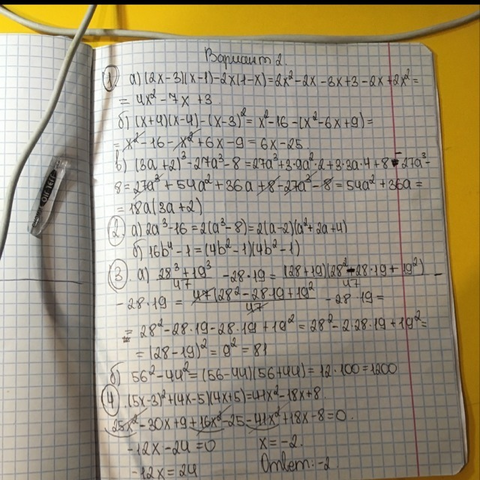 Вариант 2.
① а) (2x-3)(x-1)-2x(1-x)=2x²-2x-3x+3-2x+2x²=
= 4x²-7x+3
б) (x+4)(x-4)-(x-3)²=x²-16-(x²-6x+9)=
= x²-16-x²+6x-9=6x-25
в) (3a+2)³-27a³-8=27a³+3·9a²·2+3·3a·4+8-27a³-
8=27a³+54a²+36a+8-27a³-8=54a²+36a=
=18a(3a+2)
② а) 2a³-16=2(a³-8)=2(a-2)(a²+2a+4)
б) 16b⁴-1=(4b²-1)(4b²-1)
③ а) (28³+19³)/47 -28·19=(28+19)(28²-28·19+19²)/47 -
-28·19 = 47(28²-28·19+19²)/47 -28·19=
= 28²-28·19-28·19+19²=28²-2·28·19+19²=
=(28-19)²=9²=81
б) 56²-44²=(56-44)(56+44)=12·100=1200
④ (5x-3)²+(4x-5)(4x+5)=41x²-18x+8
25x²-30x+9+16x²-25-41x²+18x-8=0.
-12x-24=0 x=-2.
-12x=24 Ответ: -2